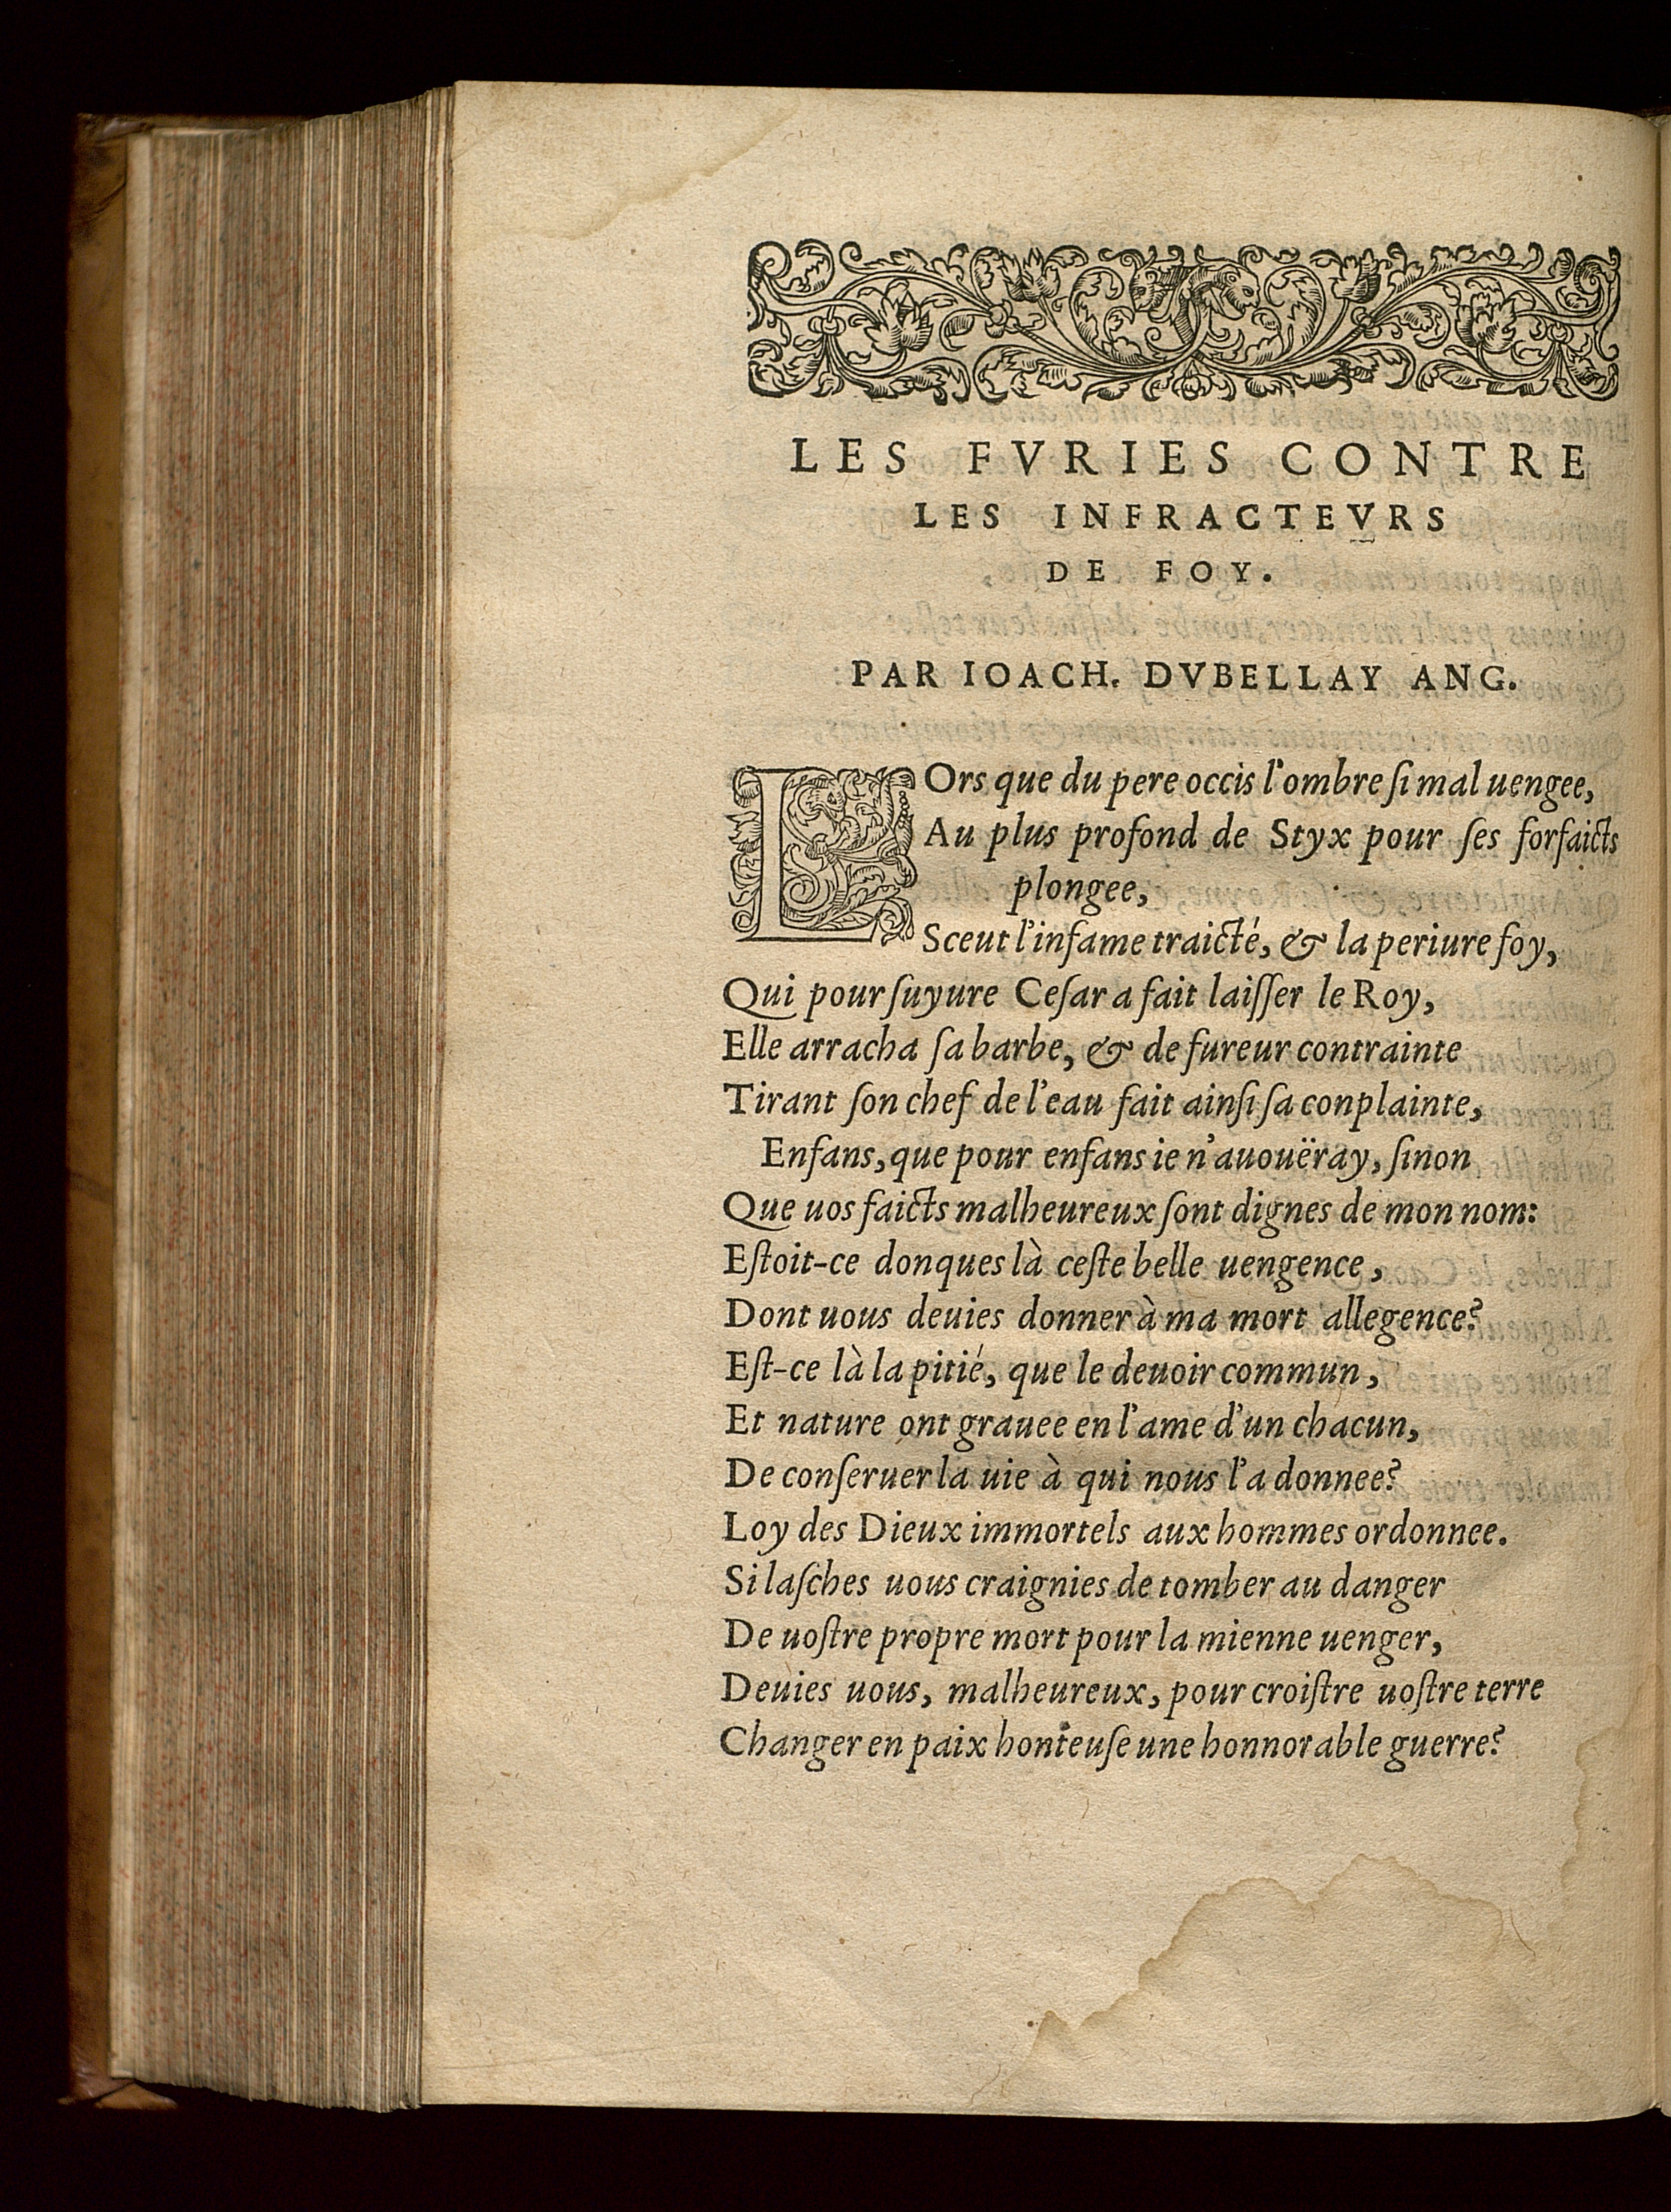 LES FVRIES CONTRE
LES INFRACTEVRS
DE FOY.
PAR IOACH. DVBELLAY ANG.
LOrs que du pere occis l'ombre ſi mal uengee,
Au plus profond de Styx pour ſes forfaicts
plongee,
Sceut l'infame traicté, & la periure foy,
Qui pour ſuyure Ceſar a fait laiſſer le Roy,
Elle arracha ſa barbe, & de fureur contrainte
Tirant ſon chef de l'eau fait ainſi ſa conplainte,
Enfans, que pour enfans ie n'auouëray, ſinon
Que uos faicts malheureux ſont dignes de mon nom:
Eſtoit-ce donques là ceſte belle uengence,
Dont uous deuies donner à ma mort allegence?
Eſt-ce là la pitié, que le deuoir commun,
Et nature ont grauee en l'ame d'un chacun,
De conſeruer la uie à qui nous l'a donnee?
Loy des Dieux immortels aux hommes ordonnee.
Si laſches uous craignies de tomber au danger
De uoſtre propre mort pour la mienne uenger,
Deuies uous, malheureux, pour croiſtre uoſtre terre
Changer en paix honteuſe une honnorable guerre?